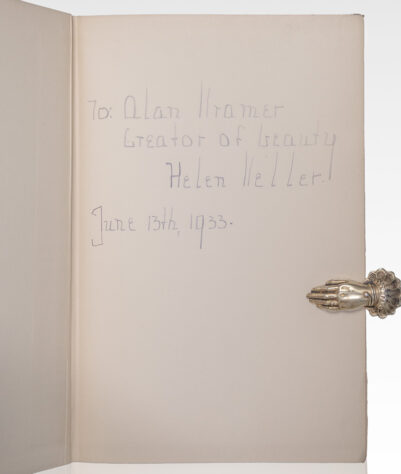 To: Alan Kramer
Creator of Beauty
Helen Keller.
June 13th, 1933.